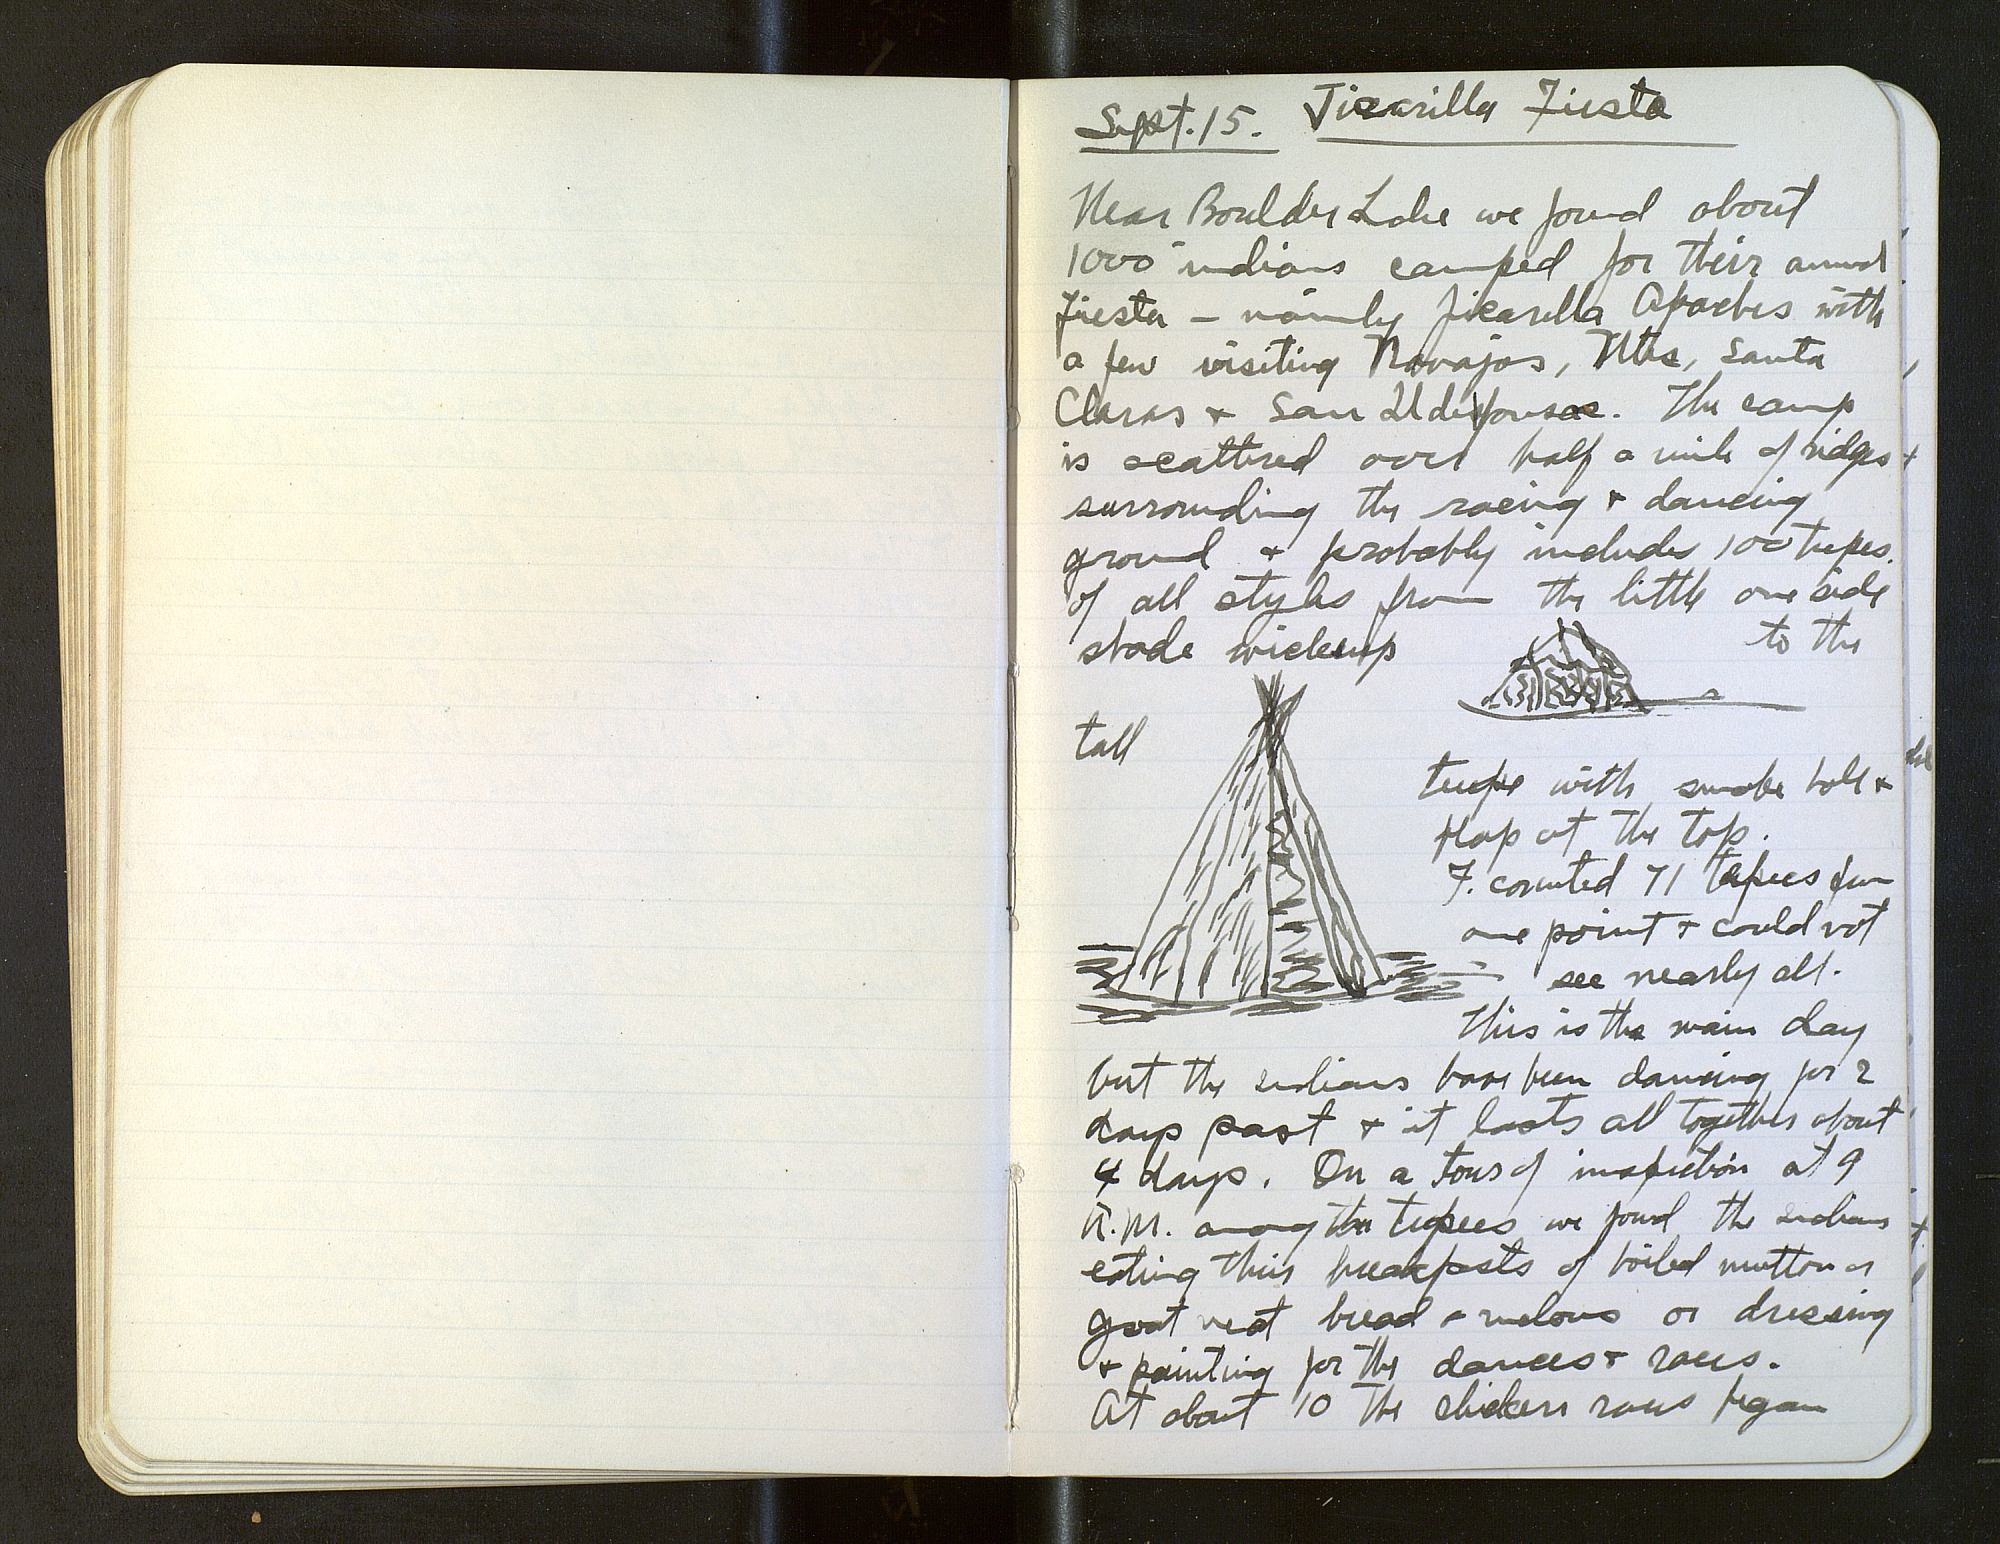 Sept. 15. Jicarilla Fiesta
Near Boulder Lake we found about
1000 indians camped for their annual
fiesta – mainly Jicarilla Apaches with
a few visiting Navajos, Utes, Santa
Claras + San Ildefonsos. The camp
is scattered over half a mile of ridges
surrounding the racing + dancing
ground + probably includes 100 tepes.
of all styles from the little one side
shade wickeup to the
tall
teepe with smoke hole +
flap at the top.
F. counted 71 tepees from
one point + could not
see nearly all.
This is the main day
but the indians have been dancing for 2
days past + it lasts all together about
4 days. On a tour of inspection at 9
A.M. among the tepees we found the indians
eating their breakfasts of boiled mutton or
goat meat bread + melons or dressing
+ painting for the dances + races.
At about 10 the chicken races began